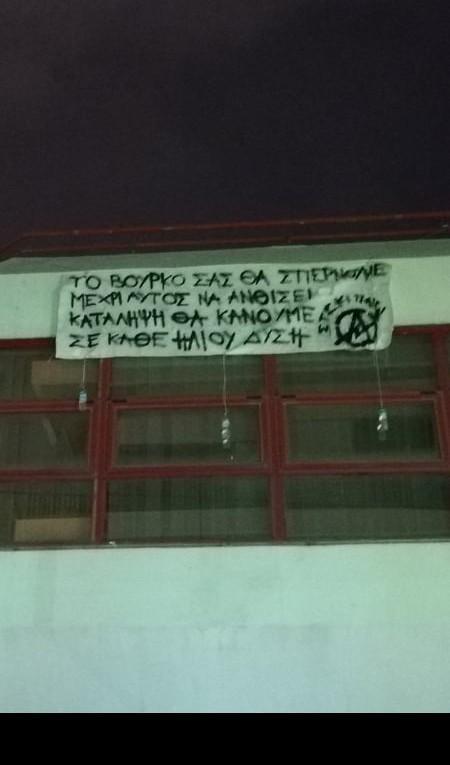 ΤΟ ΒΟΥΡΚΟ ΣΑΣ ΘΑ ΣΠΕΡΝΟΥΜΕ
ΜΕΧΡΙ ΑΥΤΟΣ ΝΑ ΑΝΘΙΣΕΙ
ΚΑΤΑΛΗΨΗ ΘΑ ΚΑΝΟΥΜΕ
ΣΕ ΚΑΘΕ ΗΛΙΟΥ ΔΥΣΗ